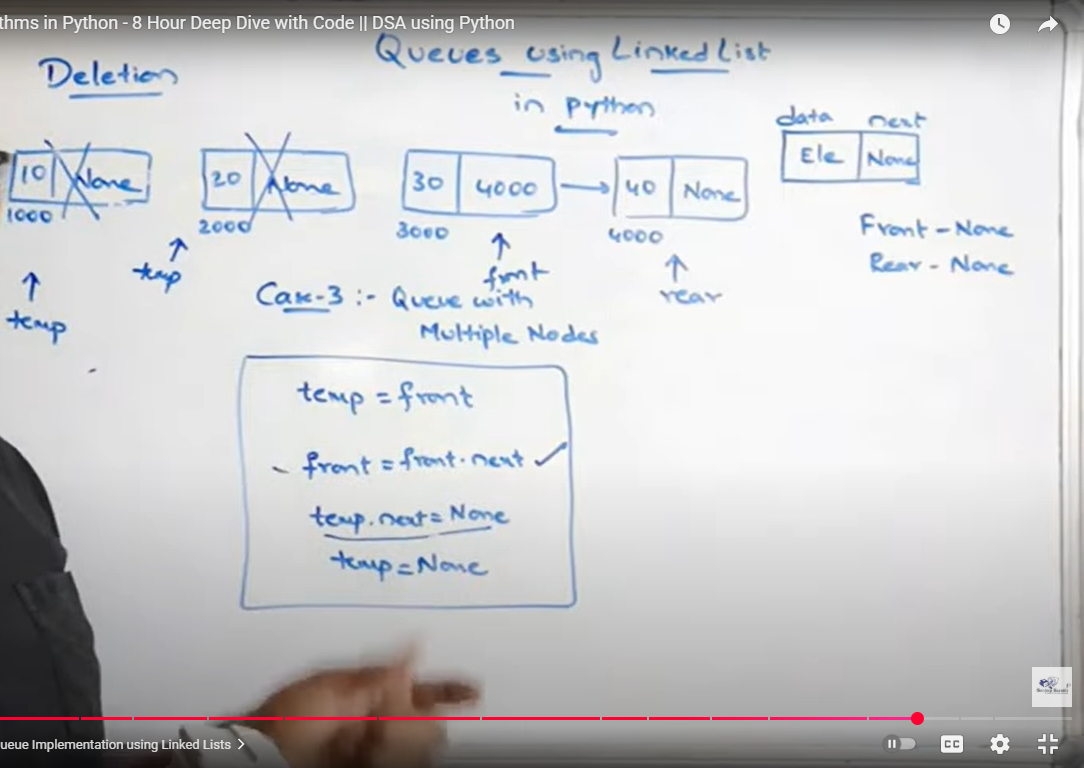 thms in Python - 8 Hour Deep Dive with Code || DSA using Python
Queues using Linked List
in python
Deletion
data next
Ele None
10 None
20 None
30 4000
40 None
1000
2000
3000
4000
temp
temp
front
rear
Front - None
Rear - None
Case-3 :- Queue with
Multiple Nodes
temp = front
- front = front.next ✓
temp.next = None
temp = None
ueue Implementation using Linked Lists >
CC